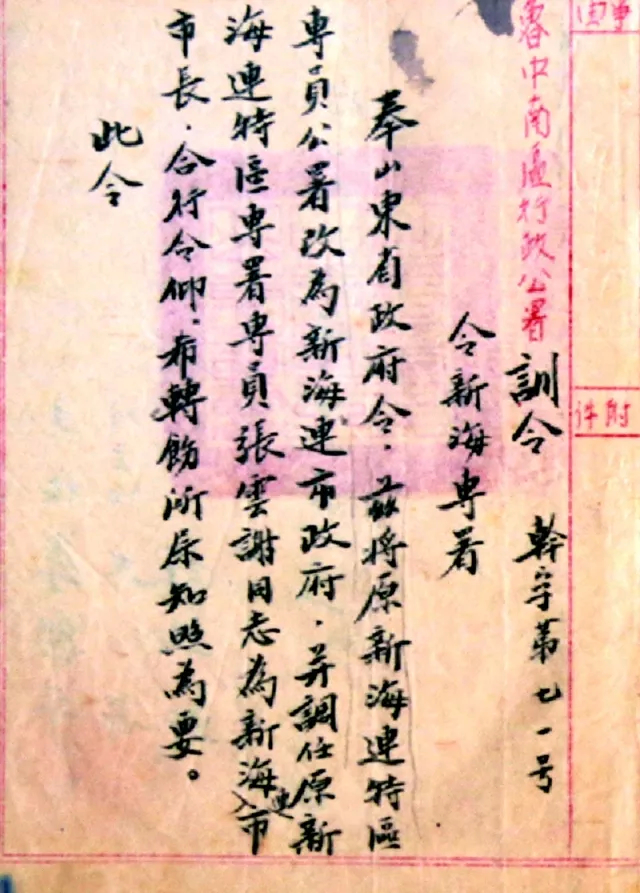 魯中南區行政公署
訓令 幹字第七一号
令新海專署
奉山東省政府令．茲將原新海連特區
專員公署改為新海連市政府．并調任原新
海連特區專署專員張雲謝同志為新海連市
市長．合行令仰．希轉飭所屬知照為要。
此令
附件